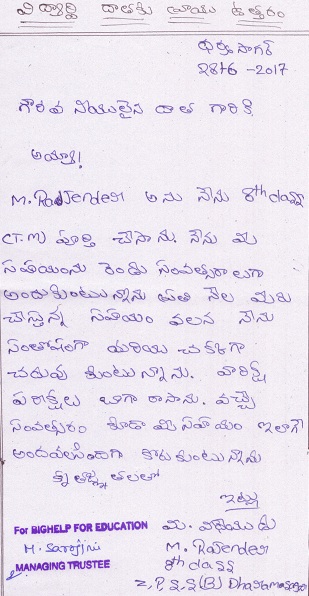 విద్యార్థి దాతకు వ్రాయు ఉత్తరం
ధర్మసాగర్
28-6-2017
గౌరవనీయులైన దాత గారికి
అయ్యా!
M. Rajender అను నేను 8th class
(T.M) పూర్తి చేసాను. నేను మీ
సహాయంను రెండు సంవత్సరాలుగా
అందుకుంటున్నాను ప్రతి నెల మీరు
చేస్తున్న సహాయం వలన నేను
సంతోషంగా మరియు చక్కగా
చదువు కుంటున్నాను. వార్షిక
పరీక్షలు బాగా రాసాను. వచ్చే
సంవత్సరం కూడా మీ సహాయం ఇలాగే
అందవలసిందిగా కోరుకుంటున్నాను
కృతజ్ఞతలతో
ఇట్లు
For BIGHELP FOR EDUCATION మీ విధేయుడు
M. Sarojini M. Rajender
MANAGING TRUSTEE 8th class
Z.P.S.S (B) Dharmasagar